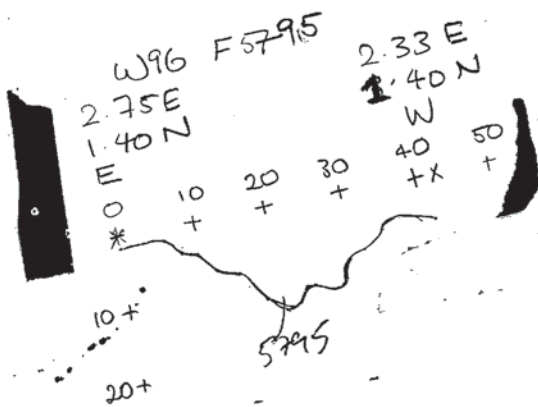 W96 F5795
2.75E
1.40N
E
2.33 E
1.40 N
W
0 10 20 30 40 50
* + + + +x +
10 +
20+
5795